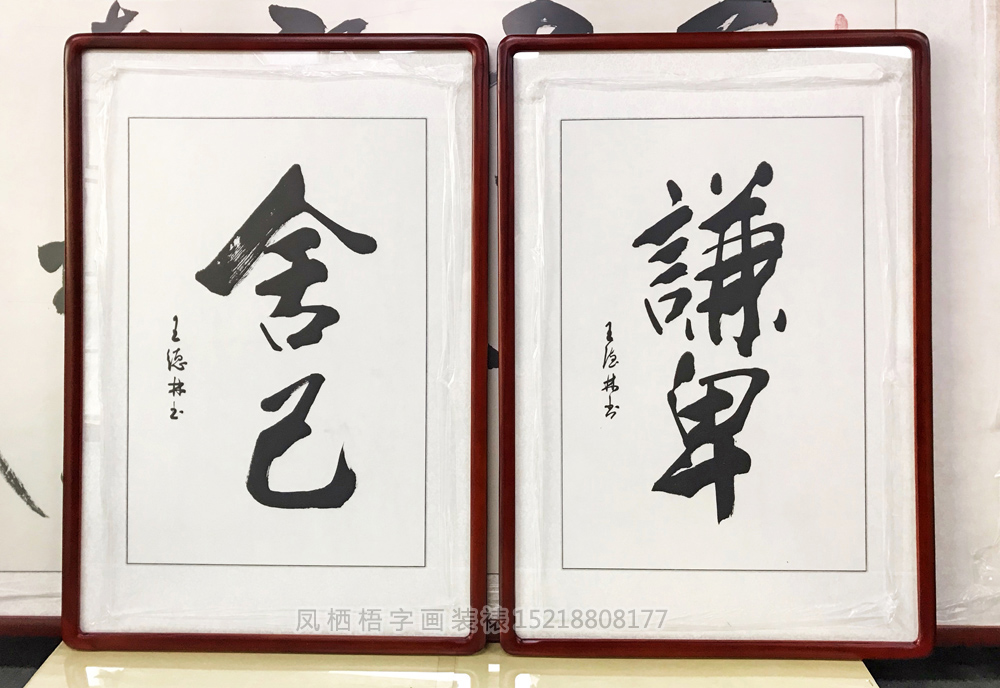 舍己
王德林书
謙卑
王德林书
凤栖梧字画装裱15218808177